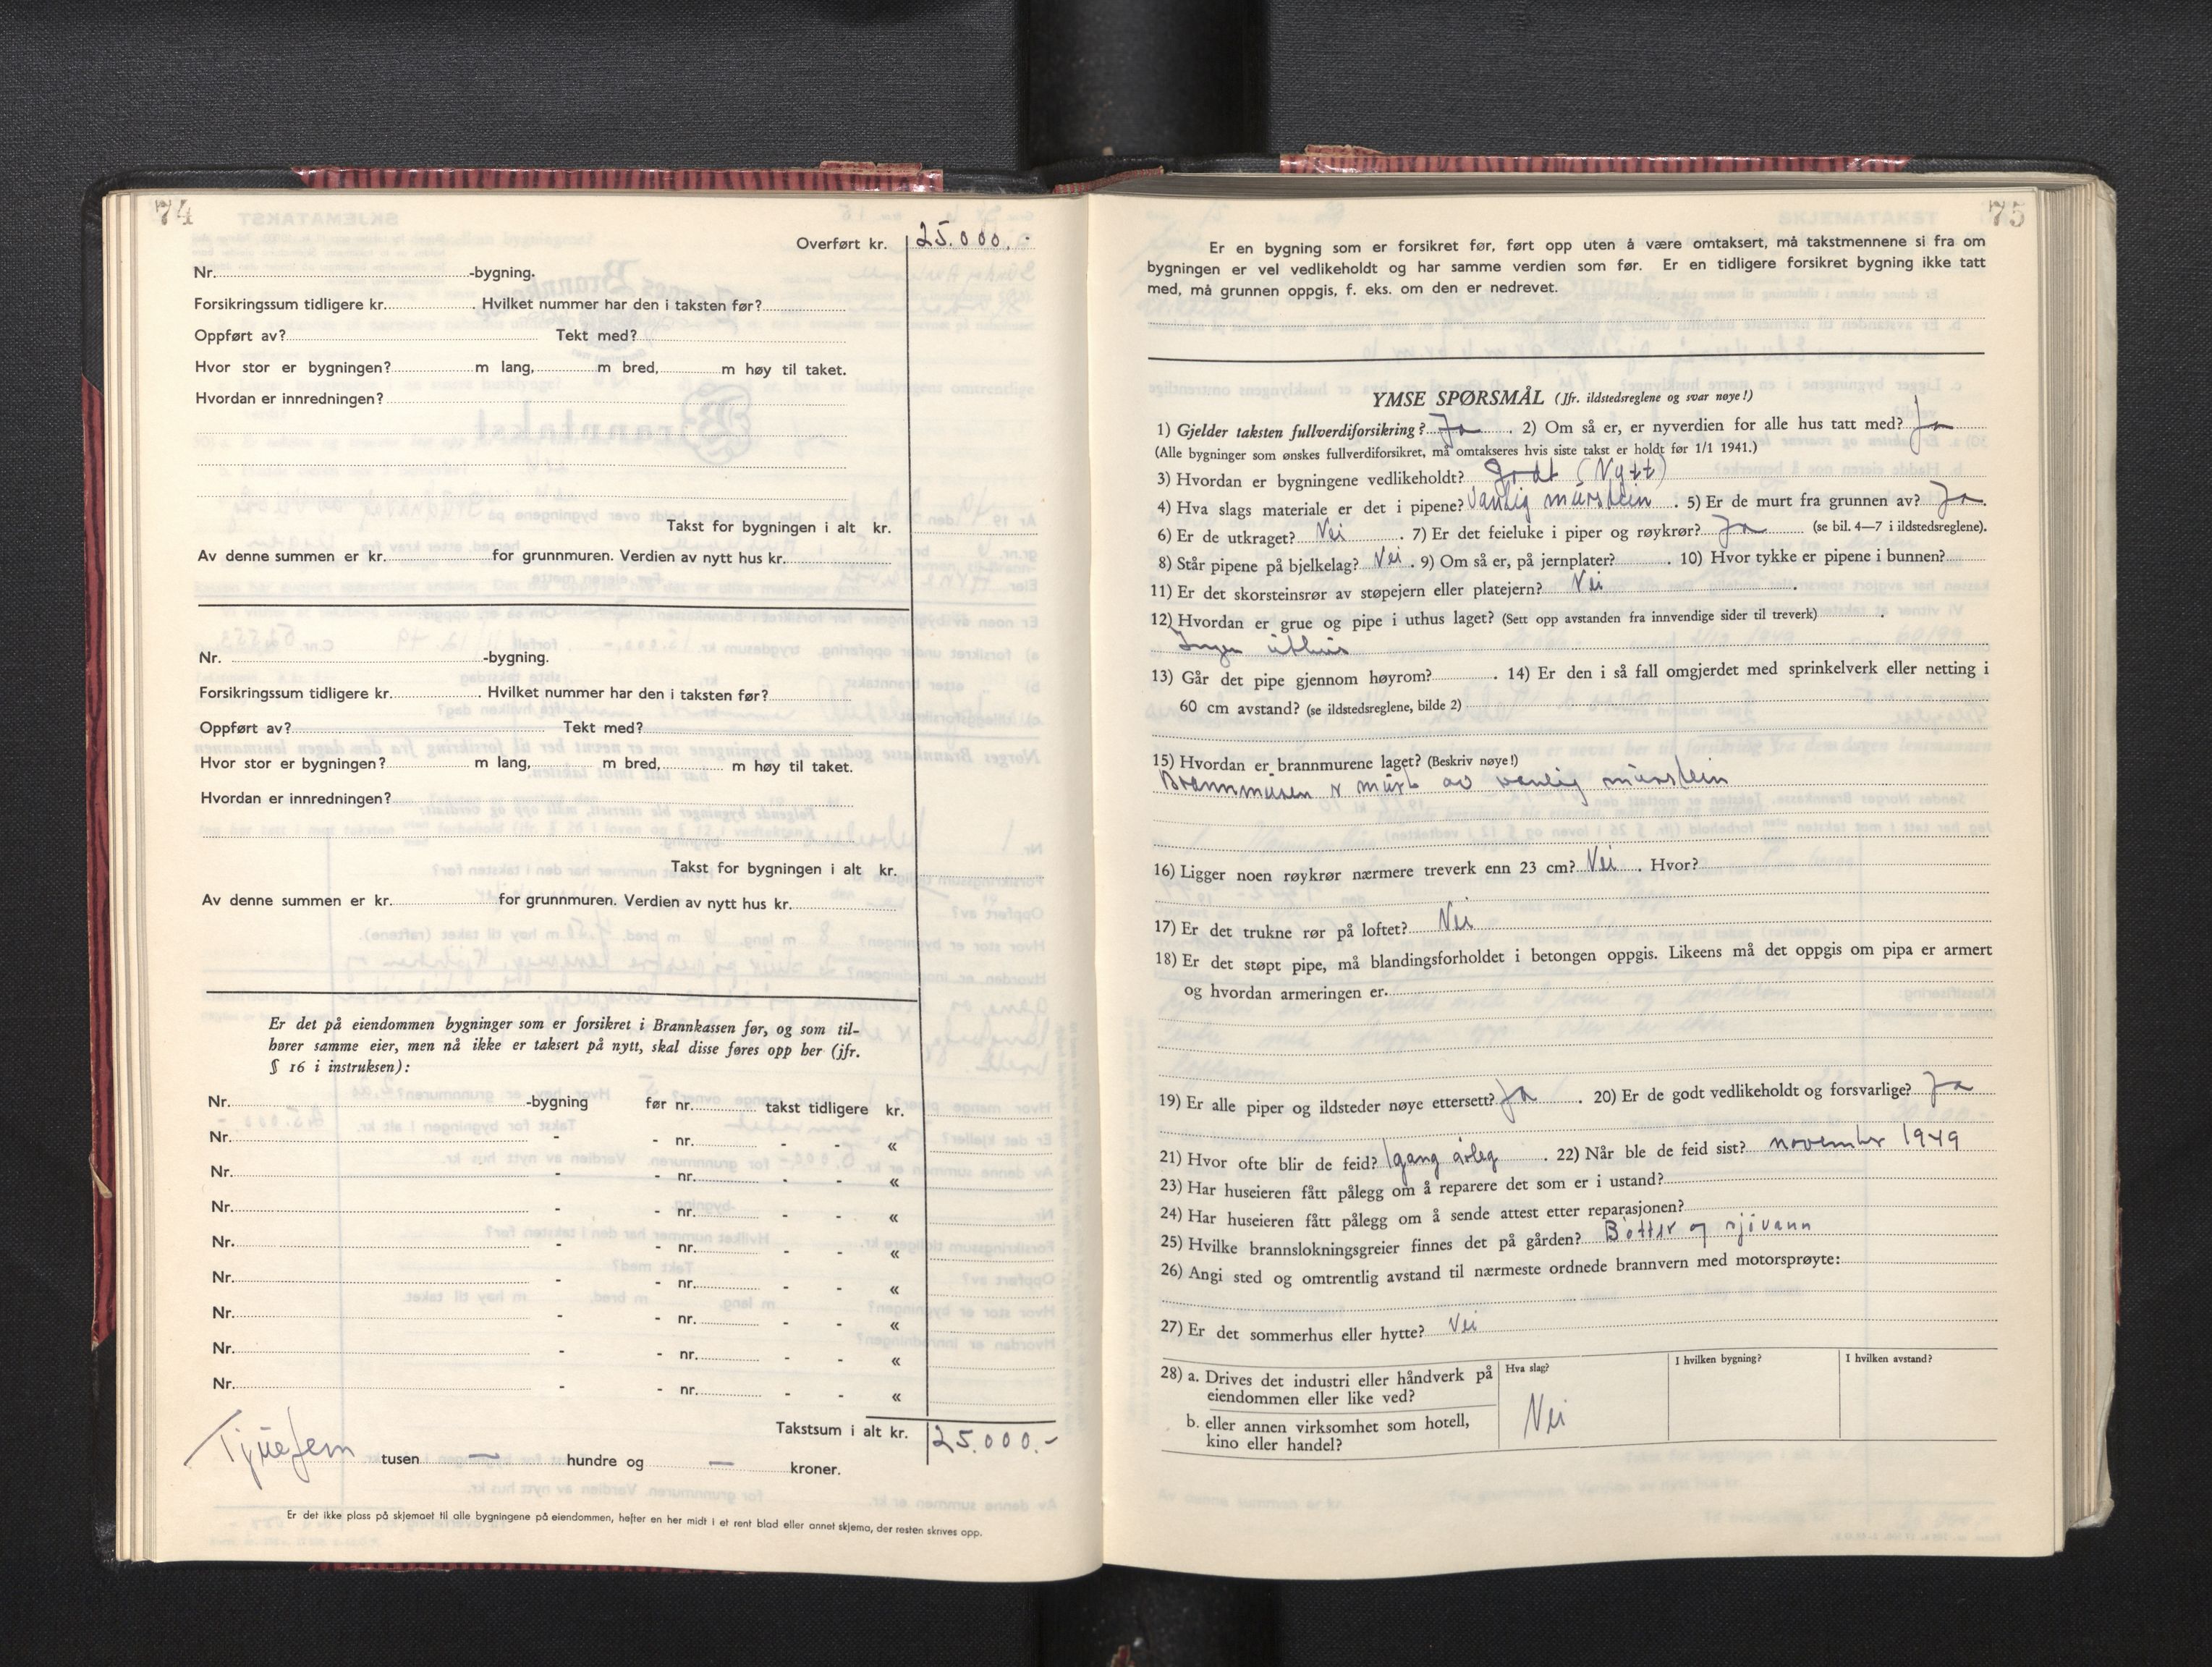 74
Overført kr. 25.000.-
Nr. -bygning.
Forsikringssum tidligere kr. . Hvilket nummer har den i taksten før?
Oppført av? Tekt med?
Hvor stor er bygningen? m lang, m bred, m høy til taket.
Hvordan er innredningen?
Takst for bygningen i alt kr.
Av denne summen er kr. for grunnmuren. Verdien av nytt hus kr.
Nr. -bygning.
Forsikringssum tidligere kr. . Hvilket nummer har den i taksten før?
Oppført av? Tekt med?
Hvor stor er bygningen? m lang, m bred, m høy til taket.
Hvordan er innredningen?
Takst for bygningen i alt kr.
Av denne summen er kr. for grunnmuren. Verdien av nytt hus kr.
Er det på eiendommen bygninger som er forsikret i Brannkassen før, og som til-
hører samme eier, men nå ikke er taksert på nytt, skal disse føres opp her (jfr.
§ 16 i instruksen):
Nr. -bygning før nr. takst tidligere kr.
Nr. - - nr. - - «
Nr. - - nr. - - «
Nr. - - nr. - - «
Nr. - - nr. - - «
Nr. - - nr. - - «
Nr. - - nr. - - «
Nr. - - nr. - - «
Nr. - - nr. - - «
Takstsum i alt kr. 25.000.-
Tjuefem tusen — hundre og — kroner.
Er det ikke plass på skjemaet til alle bygningene på eiendommen, hefter en her midt i et rent blad eller annet skjema, der resten skrives opp.
75
Er en bygning som er forsikret før, ført opp uten å være omtaksert, må takstmennene si fra om
bygningen er vel vedlikeholdt og har samme verdien som før. Er en tidligere forsikret bygning ikke tatt
med, må grunnen oppgis, f. eks. om den er nedrevet.
YMSE SPØRSMÅL (Jfr. ildstedsreglene og svar nøye!)
1) Gjelder taksten fullverdiforsikring? Ja . 2) Om så er, er nyverdien for alle hus tatt med? Ja
(Alle bygninger som ønskes fullverdiforsikret, må omtakseres hvis siste takst er holdt før 1/1 1941.)
3) Hvordan er bygningene vedlikeholdt? Godt (Nytt)
4) Hva slags materiale er det i pipene? Vanlig murstein . 5) Er de murt fra grunnen av? Ja.
6) Er de utkraget? Nei . 7) Er det feieluke i piper og røykrør? Ja (se bil. 4—7 i ildstedsreglene).
8) Står pipene på bjelkelag? Nei . 9) Om så er, på jernplater? . 10) Hvor tykke er pipene i bunnen?
11) Er det skorsteinsrør av støpejern eller platejern? Nei .
12) Hvordan er grue og pipe i uthus laget? (Sett opp avstanden fra innvendige sider til treverk) .
Ingen uthus
13) Går det pipe gjennom høyrom? . 14) Er den i så fall omgjerdet med sprinkelverk eller netting i
60 cm avstand? (se ildstedsreglene, bilde 2)
15) Hvordan er brannmurene laget? (Beskriv nøye!)
Brannmuren er murt av vanlig murstein
16) Ligger noen røykrør nærmere treverk enn 23 cm? Nei . Hvor?
17) Er det trukne rør på loftet? Nei
18) Er det støpt pipe, må blandingsforholdet i betongen oppgis. Likeens må det oppgis om pipa er armert
og hvordan armeringen er.
19) Er alle piper og ildsteder nøye ettersett? Ja . 20) Er de godt vedlikeholdt og forsvarlige? Ja
21) Hvor ofte blir de feid? 1 gang årleg . 22) Når ble de feid sist? november 1949
23) Har huseieren fått pålegg om å reparere det som er i ustand?
24) Har huseieren fått pålegg om å sende attest etter reparasjonen?
25) Hvilke brannslokningsgreier finnes det på gården? Bøtter og sjøvann
26) Angi sted og omtrentlig avstand til nærmeste ordnede brannvern med motorsprøyte:
27) Er det sommerhus eller hytte? Nei
28) a. Drives det industri eller håndverk på Hva slag? I hvilken bygning? I hvilken avstand?
eiendommen eller like ved?
b. eller annen virksomhet som hotell, Nei
kino eller handel?